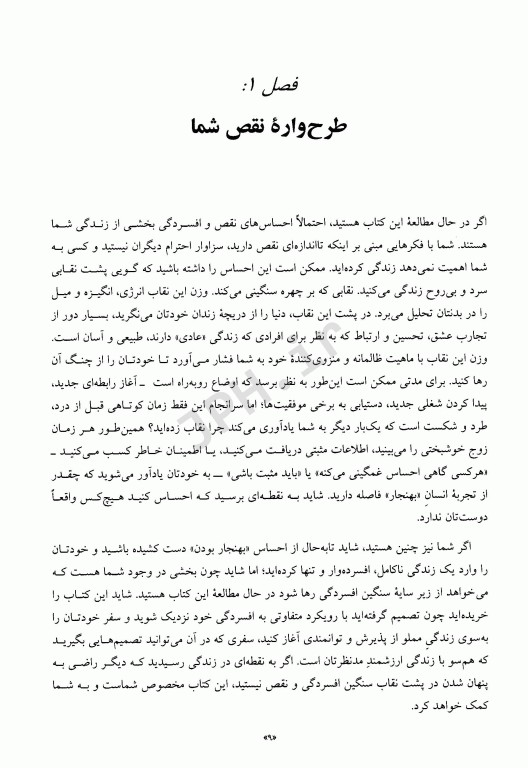 فصل ۱:
طرح‌وارهٔ نقص شما
اگر در حال مطالعهٔ این کتاب هستید، احتمالاً احساس‌های نقص و افسردگی بخشی از زندگی شما
هستند. شما با فکرهایی مبنی بر اینکه تااندازه‌ای نقص دارید، سزاوار احترام دیگران نیستید و کسی به
شما اهمیت نمی‌دهد زندگی کرده‌اید. ممکن است این احساس را داشته باشید که گویی پشت نقابی
سرد و بی‌روح زندگی می‌کنید. نقابی که بر چهره سنگینی می‌کند. وزن این نقاب انرژی، انگیزه و میل
را در بدنتان تحلیل می‌برد. در پشت این نقاب، دنیا را از دریچهٔ زندان خودتان می‌نگرید، بسیار دور از
تجارب عشق، تحسین و ارتباط که به نظر برای افرادی که زندگی «عادی» دارند، طبیعی و آسان است.
وزن این نقاب با ماهیت ظالمانه و منزوی‌کنندهٔ خود به شما فشار می‌آورد تا خودتان را از چنگ آن
رها کنید. برای مدتی ممکن است این‌طور به نظر برسد که اوضاع روبه‌راه است ــ آغاز رابطه‌ای جدید،
پیدا کردن شغلی جدید، دستیابی به برخی موفقیت‌ها؛ اما سرانجام این فقط زمان کوتاهی قبل از درد،
طرد و شکست است که یک‌بار دیگر به شما یادآوری می‌کند چرا نقاب زده‌اید؟ همین‌طور هر زمان
زوج خوشبختی را می‌بینید، اطلاعات مثبتی دریافت می‌کنید، یا اطمینان خاطر کسب می‌کنید ــ
«هرکسی گاهی احساس غمگینی می‌کنه» یا «باید مثبت باشی» ــ به خودتان یادآور می‌شوید که چقدر
از تجربهٔ انسانِ «بهنجار» فاصله دارید. شاید به نقطه‌ای برسید که احساس کنید هیچ‌کس واقعاً
دوست‌تان ندارد.
اگر شما نیز چنین هستید، شاید تابه‌حال از احساس «بهنجار بودن» دست کشیده باشید و خودتان
را وارد یک زندگی ناکامل، افسرده‌وار و تنها کرده‌اید؛ اما شاید چون بخشی در وجود شما هست که
می‌خواهد از زیر سایهٔ سنگین افسردگی رها شود در حال مطالعهٔ این کتاب هستید. شاید این کتاب را
خریده‌اید چون تصمیم گرفته‌اید با رویکرد متفاوتی به افسردگی خود نزدیک شوید و سفر خودتان را
به‌سوی زندگیِ مملو از پذیرش و توانمندی آغاز کنید، سفری که در آن می‌توانید تصمیم‌هایی بگیرید
که هم‌سو با زندگی ارزشمندِ مدنظرتان است. اگر به نقطه‌ای در زندگی رسیدید که دیگر راضی به
پنهان شدن در پشت نقاب سنگین افسردگی و نقص نیستید، این کتاب مخصوص شماست و به شما
کمک خواهد کرد.
«۹»